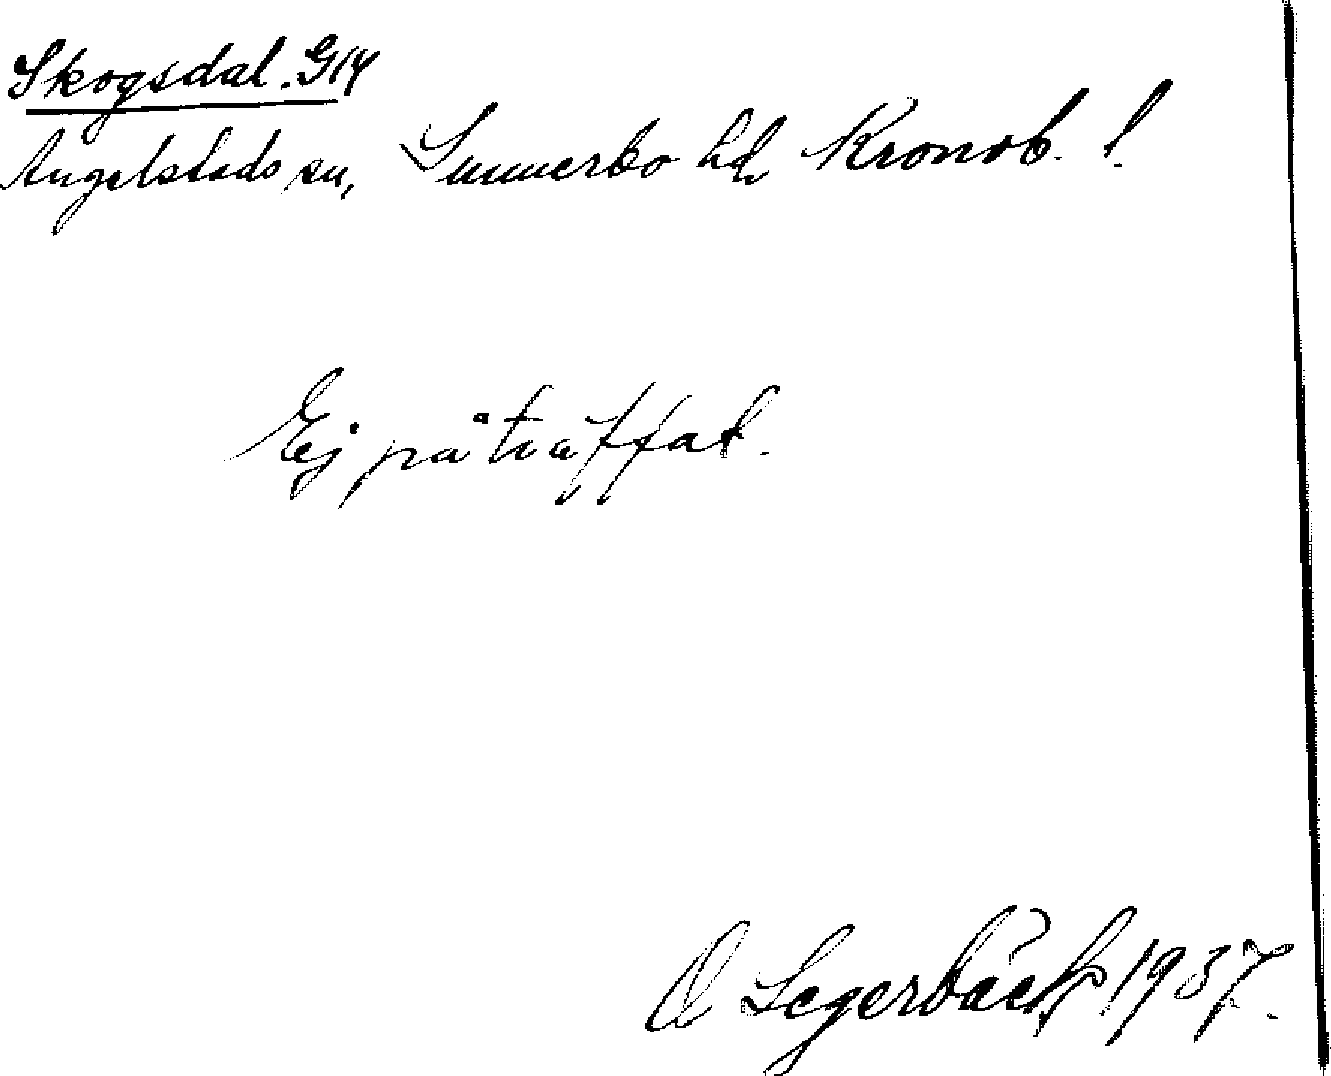 Skogsdal. G14
Angelstads sn, Sunnerbo hd Kronob. l.
Ej påträffat.
O Segerbäck 1937.